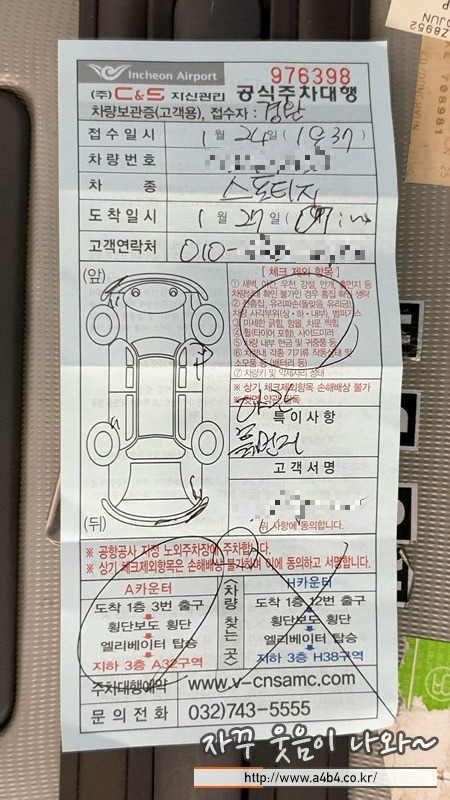 Incheon Airport
976398
(주) C&S 지신관리 공식주차대행
차량보관증(고객용), 접수자 :
접수일시 1월 24일 (
차량번호
차종 스포티지
도착일시 1월 27일 (
고객연락처 010-
(앞)
[ 체크 제외 항목 ]
① 새벽, 야간, 우천, 강설, 안개, 흙먼지 등
차량상태 확인 불가인 경우 흠집 확인 생략
차량 사각부위(상·하·내부), 범퍼기스
③ 미세한 긁힘, 함몰, 차문 찍힘
④ 휠(타이어 포함), 사이드미러
⑤ 차량 내부 현금 및 귀중품 등
⑥ 차량내 각종 기기류 작동상태 및
소모품 등 (배터리 등)
※ 상기 체크제외항목 손해배상 불가
야간
특이사항
흙먼지
고객서명
위 사항에 동의합니다.
(뒤)
※ 공항공사 지정 노외주차장에 주차합니다.
※ 상기 체크제외항목은 손해배상 불가하며 이에 동의하고 서명합니다.
A카운터
도착 1층 3번 출구
횡단보도 횡단
엘리베이터 탑승
지하 3층 A32구역
<차량 찾는 곳>
H카운터
도착 1층 12번 출구
횡단보도 횡단
엘리베이터 탑승
지하 3층 H38구역
주차대행예약 www.v-cnsamc.com
문의전화 032)743-5555
자꾸 웃음이 나와~
http://www.a4b4.co.kr/